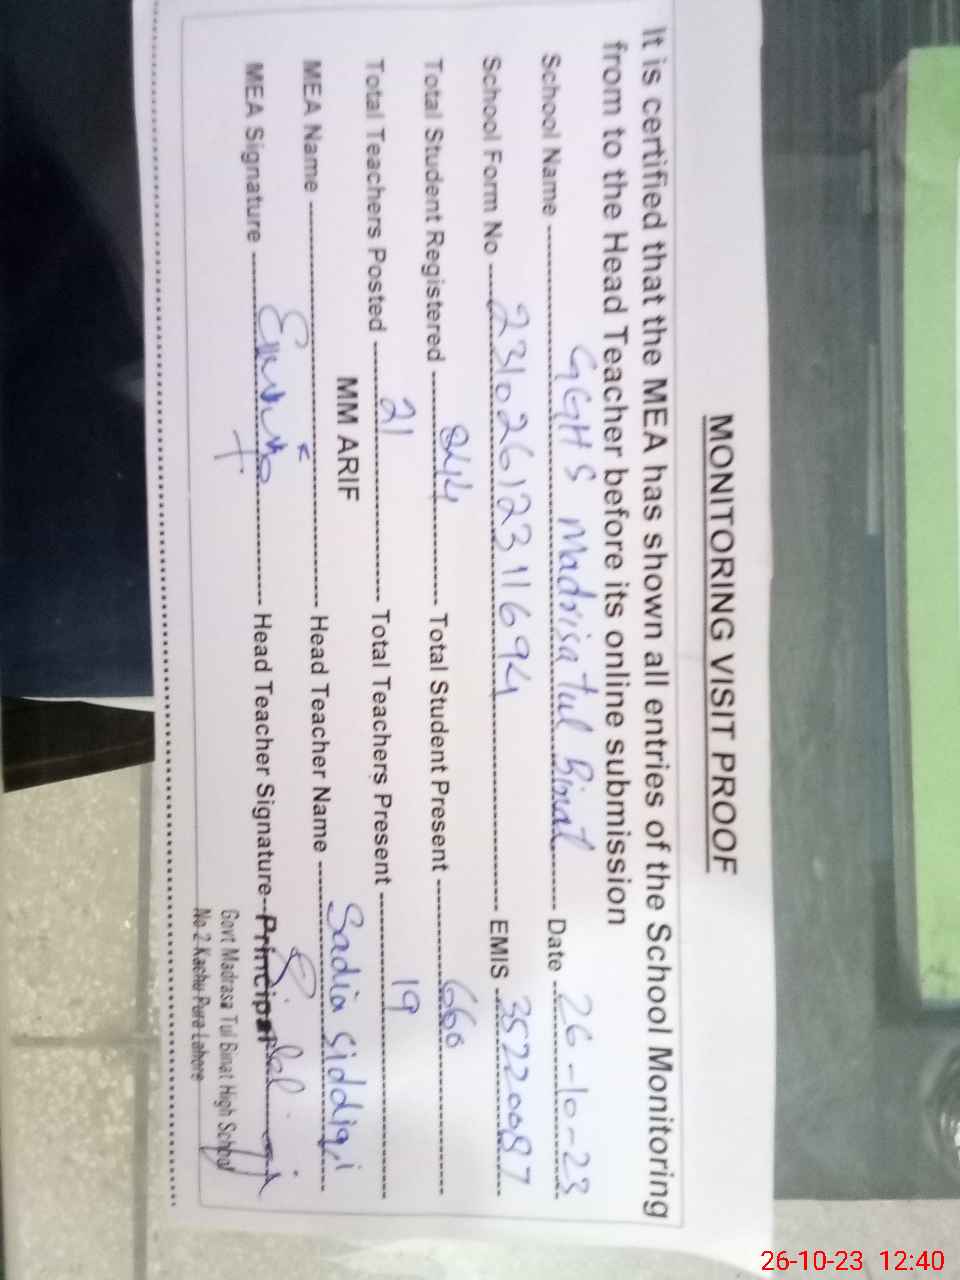 MONITORING VISIT PROOF
It is certified that the MEA has shown all entries of the School Monitoring
from to the Head Teacher before its online submission
School Name GGHS Madrisa tul Binat Date 26-10-23
School Form No 23102612311694 EMIS 35220087
Total Student Registered 844 Total Student Present 660
Total Teachers Posted 21 Total Teachers Present 19
MM ARIF
MEA Name Head Teacher Name Sadia Siddiqi
MEA Signature Head Teacher Signature Principal
Govt Madrasa Tul Binat High School
No.2 Kachu Pura Lahore
26-10-23 12:40